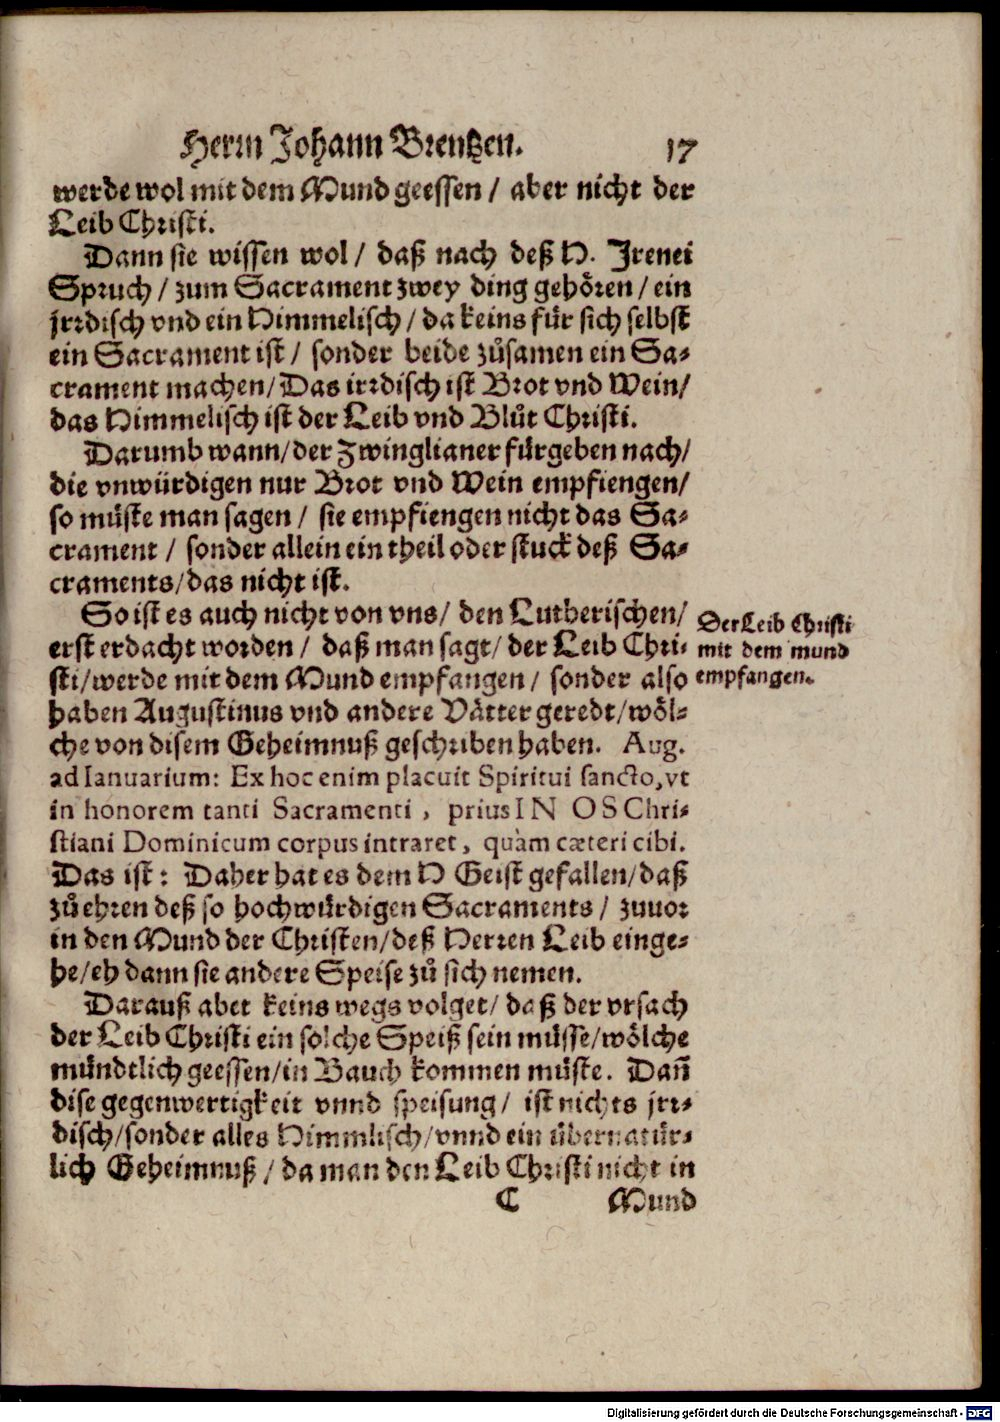 Herrn Johann Brentzen. 17
werde wol mit dem Mund geessen / aber nicht der
Leib Christi.
Dann sie wissen wol / daß nach deß H. Irenei
Spruch / zum Sacrament zwey ding gehören / ein
jrrdisch vnd ein Himmelisch / da keins für sich selbst
ein Sacrament ist / sonder beide zůsamen ein Sa-
crament machen / Das irrdisch ist Brot vnd Wein /
das Himmelisch ist der Leib vnd Blůt Christi.
Darumb wann / der Zwinglianer fürgeben nach /
die vnwürdigen nur Brot vnd Wein empfiengen /
so müste man sagen / sie empfiengen nicht das Sa-
crament / sonder allein ein theil oder stuck deß Sa-
craments / das nicht ist.
So ist es auch nicht von vns / den Lutherischen /
erst erdacht worden / daß man sagt / der Leib Chri-
sti / werde mit dem Mund empfangen / sonder also
haben Augustinus vnd andere Vätter geredt / wöl-
che von disem Geheimnuß geschriben haben. Aug.
ad Ianuarium: Ex hoc enim placuit Spiritui sancto, vt
in honorem tanti Sacramenti, prius IN OS Chri-
stiani Dominicum corpus intraret, quàm cæteri cibi.
Das ist: Daher hat es dem H Geist gefallen / daß
zů ehren deß so hochwürdigen Sacraments / zuuor
in den Mund der Christen / deß Herren Leib einge-
he / eh dann sie andere Speise zů sich nemen.
Darauß aber keins wegs volget / daß der vrsach
der Leib Christi ein solche Speiß sein müsse / wölche
mündtlich geessen / in Bauch kommen müste. Dañ
dise gegenwertigkeit vnnd speisung / ist nichts jrr-
disch / sonder alles Himmlisch / vnnd ein übernatür-
lich Geheimnuß / da man den Leib Christi nicht in
C Mund
Der Leib Christi
mit dem mund
empfangen.
Digitalisierung gefördert durch die Deutsche Forschungsgemeinschaft - DFG